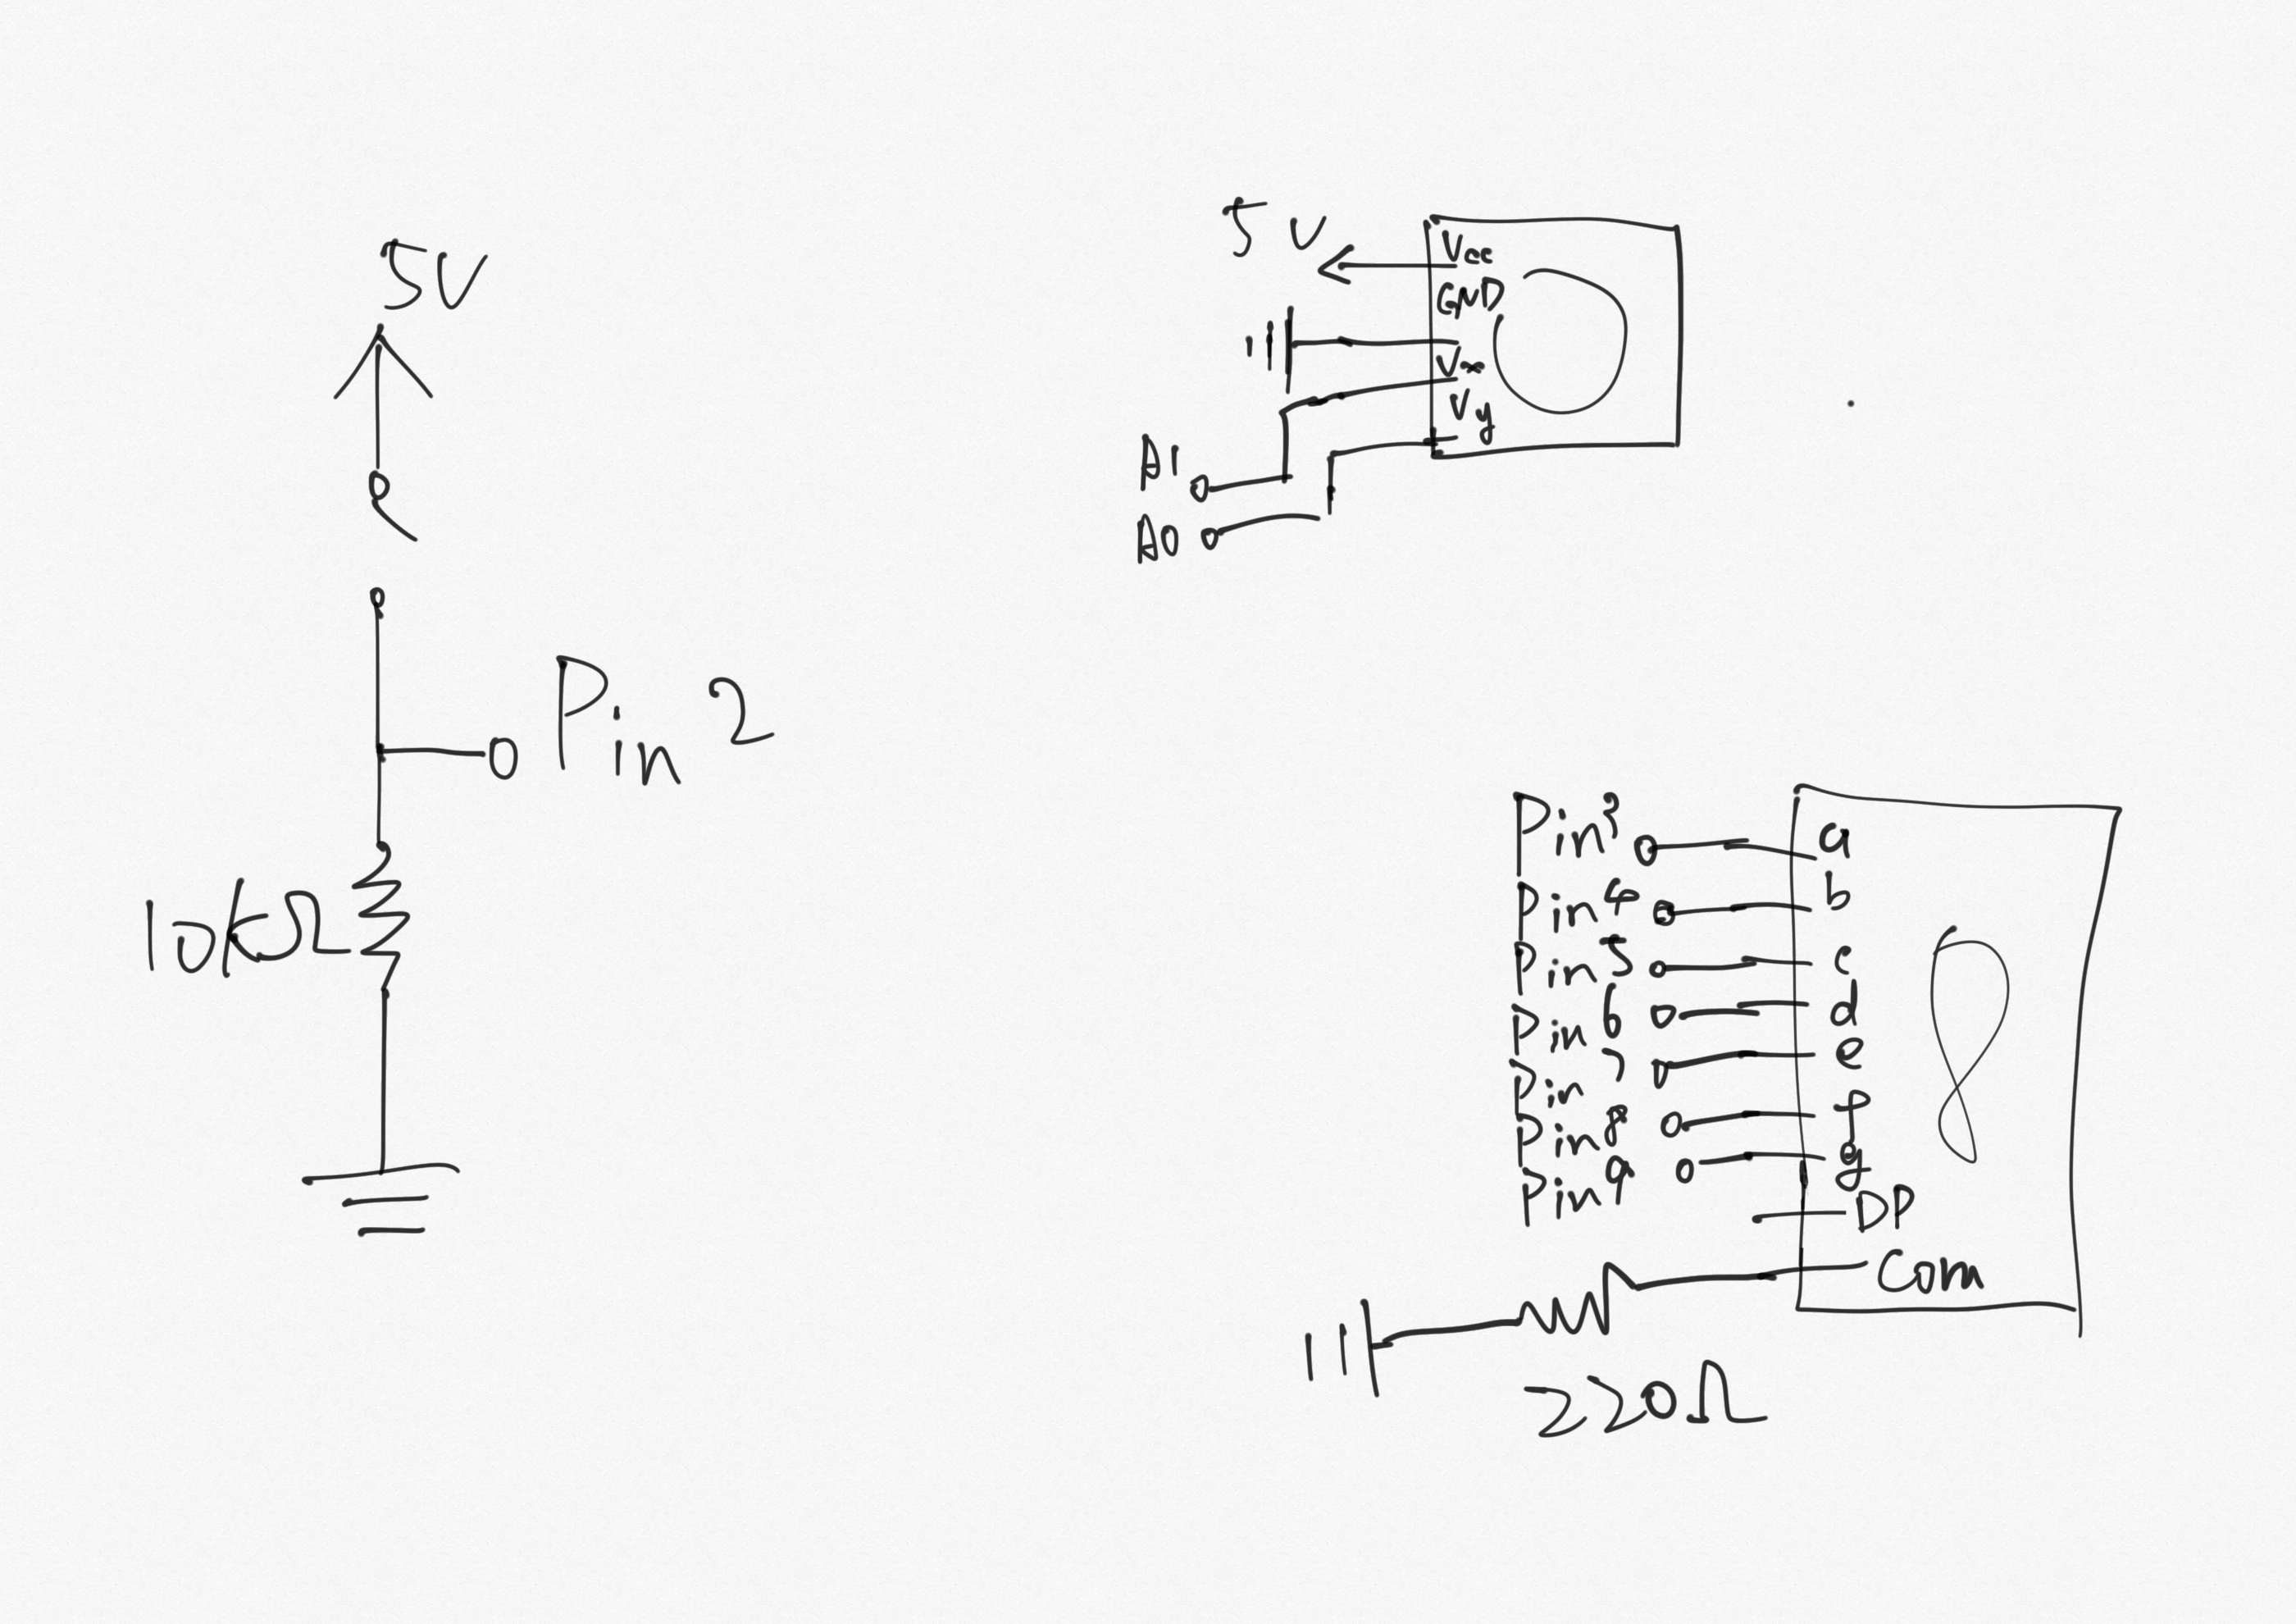 5V
Pin 2
10kΩ
5V
Vcc
GND
Vx
Vy
A1
A0
Pin3
a
Pin4
b
Pin5
c
Pin6
d
Pin7
e
Pin8
f
Pin9
g
DP
Com
220Ω
8